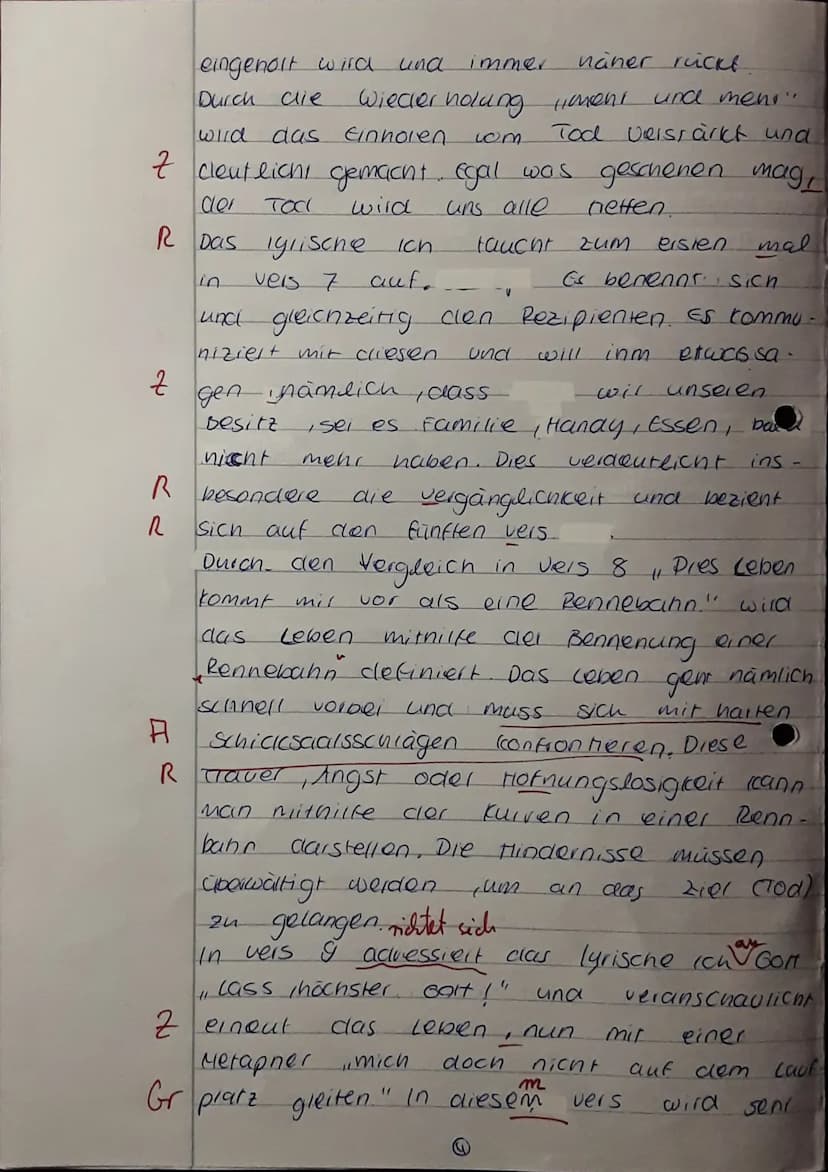 eingeholt wird und immer näher rückt
Durch die Wiederholung „mehr und mehr"
wird das Einholen vom Tod verstärkt und
Z deutlich gemacht. Egal was geschehen mag,
der Tod wird uns alle
R Das lyrische Ich taucht zum ersten mal
in Vers 7 auf. Es benennt sich
und gleichzeitig den Rezipienten. Es kommu-
niziert mit diesen und will ihm etwas sa-
Z gen, nämlich, dass wir unseren
besitz, sei es Familie, Handy, Essen,
nicht mehr haben. Dies verdeutlicht ins-
R besondere die vergänglichkeit und bezieht
R sich auf den fünften vers.
Durch den Vergleich in Vers 8 „Dies Leben
kommt mir vor als eine Rennebahn." wird
das Leben mithilfe der Bennenung einer
„Rennebahn" definiert. Das Leben geht nämlich
schnell vorbei und muss sich mit harten
A Schicksaalsschlägen konfrontieren. Diese
R Trauer, Angst oder Hofnungslosigkeit kann
man mithilfe der Kurven in einer Renn-
bahn darstellen. Die Hindernisse müssen
überwältigt werden, um an das Ziel (Tod)
zu gelangen. richtet sich
In Vers 9 adressiert das lyrische Ich an Gott
„Lass höchster Gott!" und veranschaulicht
Z erneut das Leben, nun mit einer
Metapher „mich doch nicht auf dem Lauf-
platz gleiten." In diesem vers wird sehr
Gr m
4